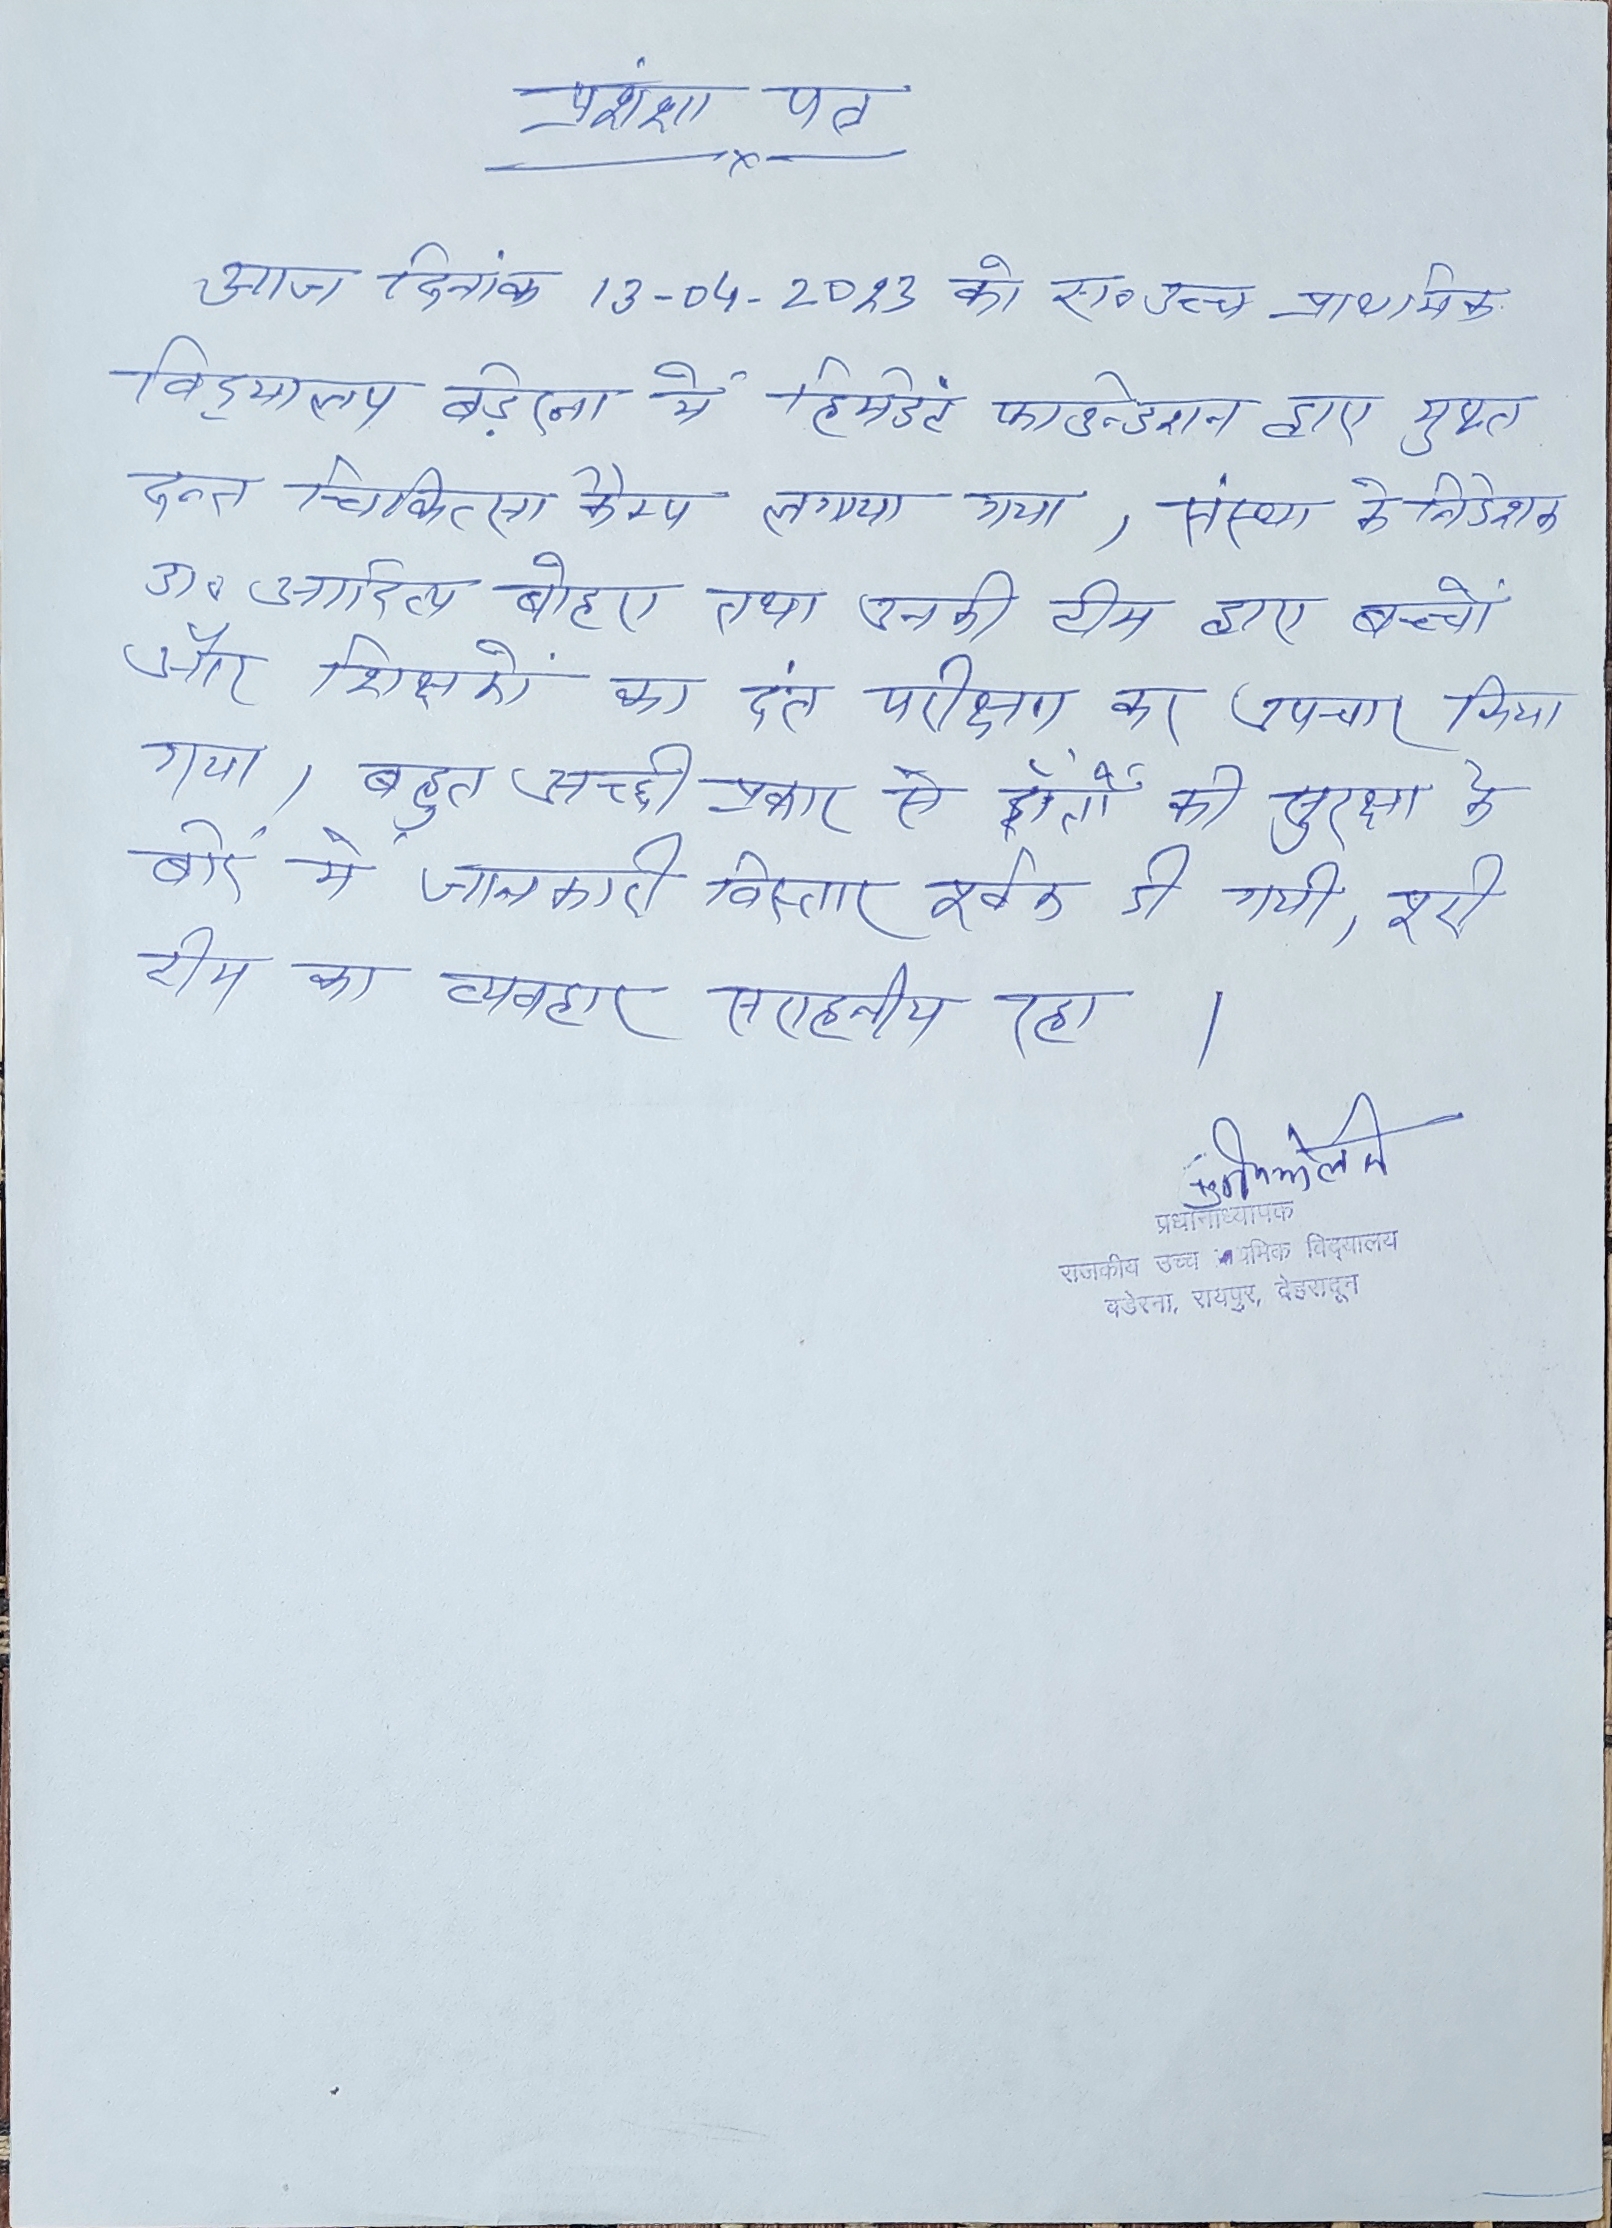 प्रशंशा पत्र
आज दिनांक 13-04-2023 को रा० उच्च प्राथमिक
विद्यालय बड़ेरना में हिमडेंट फाउन्डेशन द्वारा मुफ्त
दन्त चिकित्सा कैम्प लगाया गया, संस्था के निदेशक
डा० आदित्य बोहरा तथा उनकी टीम द्वारा बच्चों
और शिक्षकों का दंत परीक्षण कर उपचार किया
गया, बहुत अच्छी प्रकार से दाँतों की सुरक्षा के
बारें में जानकारी विस्तार पूर्वक दी गयी, पूरी
टीम का व्यवहार सराहनीय रहा ।
प्रधानाध्यापक
राजकीय उच्च प्राथमिक विद्यालय
बडेरना, रायपुर, देहरादून